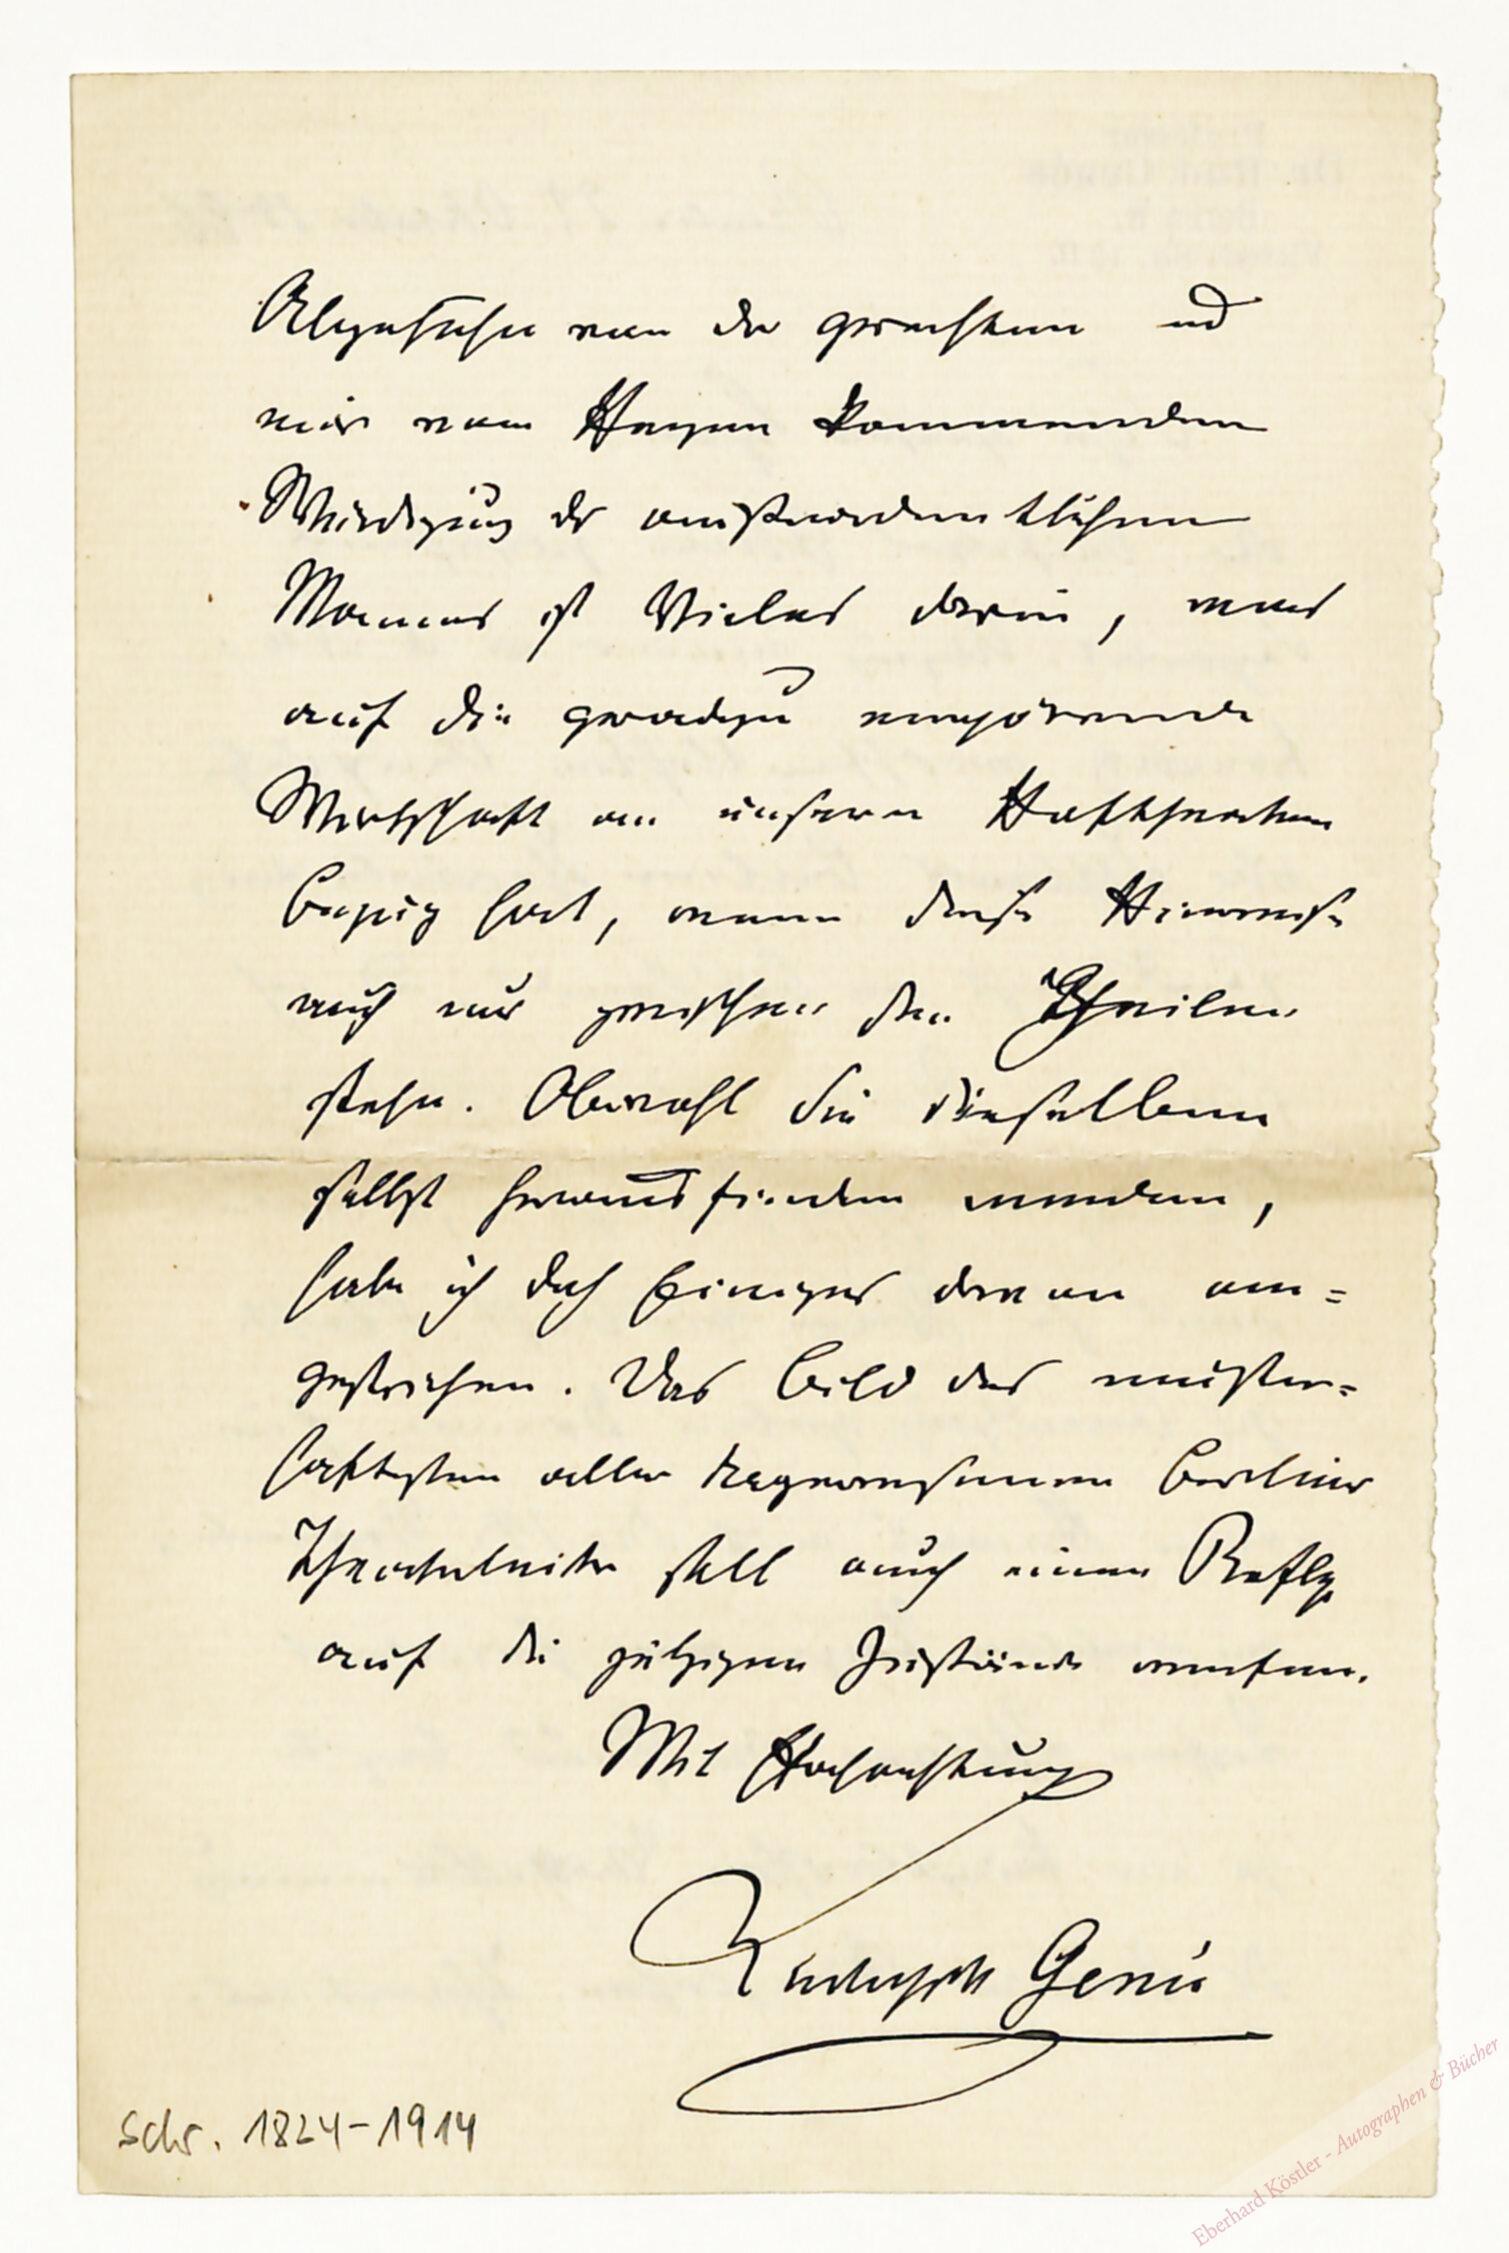 Abgesehen von der gerechten und
mir vom Herzen kommenden
Würdigung des außerordentlichen
Mannes ist Vieles darin, was
auf die geradezu empörende
Wirthschaft an unserm Hoftheater
Bezug hat, wenn diese Hinweise
auch nur zwischen den Zeilen
stehn. Obwohl Sie dieselben
selbst herausfinden werden,
habe ich doch Einiges davon an=
gestrichen. Das Bild des muster=
haftesten aller dagewesenen Berliner
Theaterleiter soll auch einen Reflex
auf die jetzigen Zustände werfen.
Mit Hochachtung
Rudolph Genée
Schr. 1824-1914
Eberhard Köstler - Autographen & Bücher